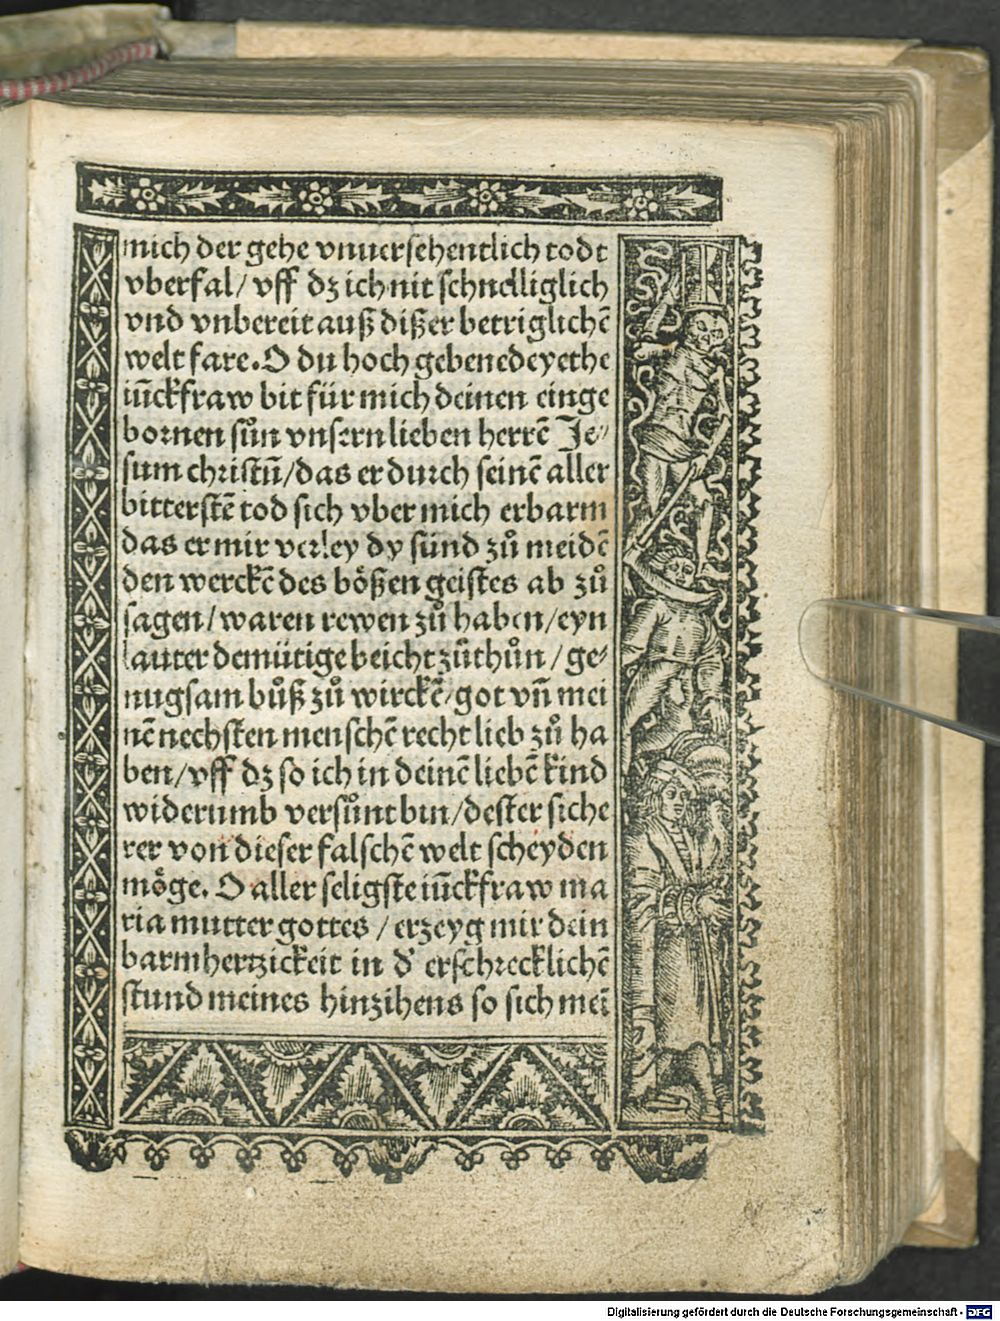 mich der gehe vnuersehentlich todt
vberfal/ vff dz ich nit schnelliglich
vnd vnbereit auß dißer betriglichē
welt fare. O du hoch gebenedeyethe
iūckfraw bit für mich deinen einge
bornen sůn vnsern lieben herrē Je⸗
sum christū/das er durch seinē aller
bitterstē tod sich vber mich erbarm
das er mir verley dy sünd zů meidē
den werckē des bößen geistes ab zů
sagen/ waren rewen zů haben/eyn
lauter demütige beicht zůthůn / ge⸗
nugsam bůß zů wirckē/ got vn̄ mei
nē nechsten menschē recht lieb zů ha
ben/ vff dz so ich in deinē liebē kind
widerumb versůnt bin/dester siche
rer von dieser falschē welt scheyden
möge. O aller seligste iūckfraw ma
ria mutter gottes / erzeyg mir dein
barmhertzickeit in d' erschrecklichē
stund meines hinzihens so sich meī
Digitalisierung gefördert durch die Deutsche Forschungsgemeinschaft - DFG